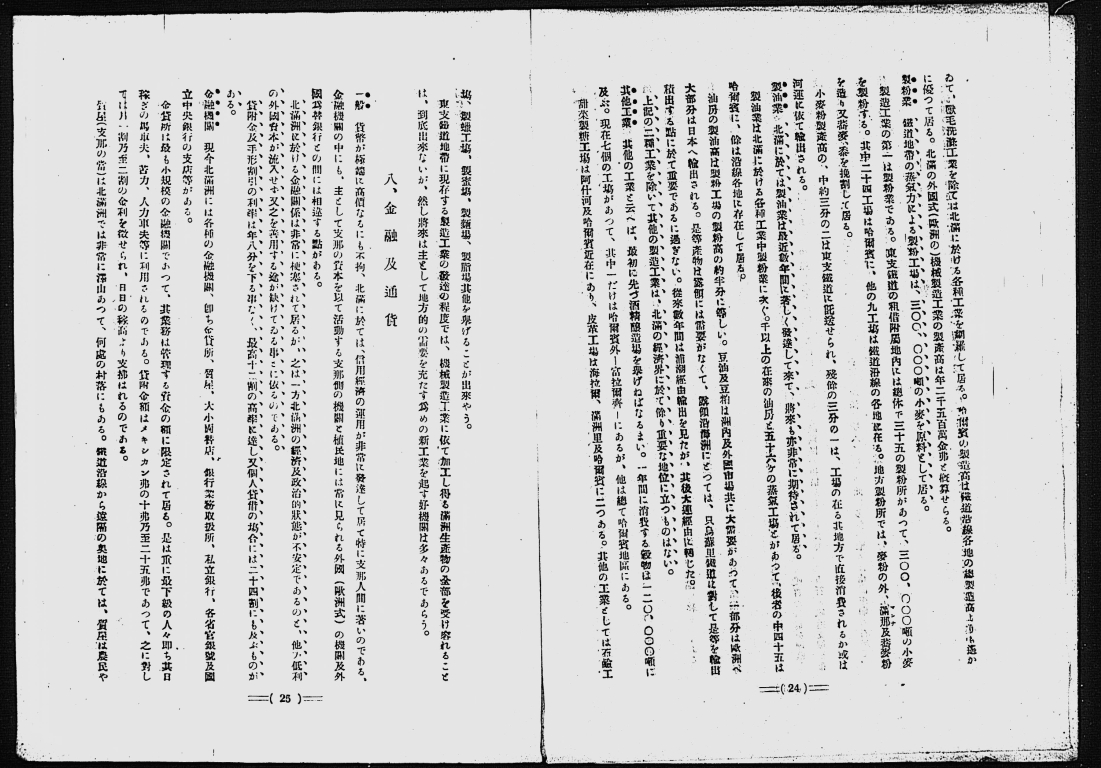 に優つて居る。北滿の外國式(歐洲の)機械製造工業の製產高は年二千五百萬金弗と概算せらる。
製粉業 鐵道地帶の蒸氣力による製粉工場は、三〇〇、〇〇〇噸の小麥を原料として居る。
製造工業の第一は製粉業である。東支鐵道の租借附屬地內には總体で三十五の製粉所があつて、三〇〇、〇〇〇噸の小麥
を製粉する。其中二十四工場は哈爾賓に、他の九工場は鐵道沿線の各地に在る。地方製粉所では、麥粉の外、
を造り又蕎麥、黍を挽割して居る。
小麥粉製產高の、中約三分の二は東支鐵道に託送せられ、殘餘の三分の一は、工場の在る其地方で直接消費されるか或は
河運に依て輸出される。
製油業 北滿に於ては製油業は最近數年間に著しく發達して來て、將來も亦非常に期待されて居る。
製油業は北滿に於ける各種工業中製粉業に次ぐ。千以上の在來の油房と五十六ケの蒸氣工場とがあつて、後者の中四十五は
哈爾賓に、餘は沿線各地に存在して居る。
油房の製油高は製粉工場の製粉高の約半分に等しい。豆油及豆粕は洲內及外國市場共に大需要があつて、一部分は歐洲へ
大部分は日本へ輸出される。是等產物は露領には需要がなくて、露領沿海洲にとつては、只烏蘇里鐵道に對して是等を輸出
積出する點に於て重要であるに過ぎない。從來數年間は浦潮經由輸出を見たが、其後大連經由に轉じた。
上記の二種工業を除いて其他の製造工業は、北滿の經濟界に於て餘り重要な地位に立つものはない。
其他工業 其他の工業と云へば、最初に先づ酒精釀造場を擧げねばなるまい。一年間に消費する穀物は一二〇、〇〇〇噸に
及ぶ。現在七個の工場があつて、其中一だけは哈爾賓外―富拉爾齊―にあるが、他は總て哈爾賓地區にある。
甜菜製糖工場は阿什河及哈爾賓近在にあり、皮革工場は海拉爾、滿洲里及哈爾賓に二つある。其他の工業としては石鹼工
(24)
場、製蠟工場、製蜜場、製麵場、製脂場其他を擧げることが出來やう。
東支鐵道地帶に現存する製造工業の發達の程度では、機械製造工業に依て加工し得る滿洲生產物の全部を受け容れること
は、到底出來ないが、然し將來は主として地方的の需要を充たす爲めの新工業を起す好機關は多々あるであらう。
八、金融及通貨
一般 貨幣が極端に高價なるにも不拘、北滿に於ては、信用經濟の運用が非常に發達して居て特に支那人間に著いのである。
金融機關の中にも、主として支那の資本を以て活動する支那側の機關と植民地には常に見られる外國(歐洲式)の機關及外
國爲替銀行との間には相違する點がある。
北滿洲に於ける金融關係は非常に梗塞されて居るが、之は一方北滿洲の經濟及政治的狀態が不安定であるのと、他方低利
の外國資本が流入せず又之を善用する途が缺けてゐる事とに依るのである。
貸附金及手形割引の利率は年八分を下る事なく、最高十二割の高率に達し又個人貸借の場合には二十四割にも及ぶものが
ある。
金融機關 現今北滿洲には各種の金融機關、卽ち金貸所、質屋、大小兩替店、銀行業務取扱所、私立銀行、各省官銀號及國
立中央銀行の支店等がある。
金貸所は最も小規模の金融機關であつて、其業務は管理する資金の額に限定されて居る。是は重に最下級の人々卽ち其日
稼ぎの馬車夫、苦力、人力車夫等に利用されるのである。貸附金額はメキシカン弗の十弗乃至二十五弗であつて、之に對し
ては月一割乃至二割の金利を徵せられ、日日の稼高より支拂はれるのである。
質屋(支那の當)は北滿洲では非常に澤山あつて、何處の村落にもある。鐵道沿線から遠隔の奧地に於ては、質屋は農民や
(25)